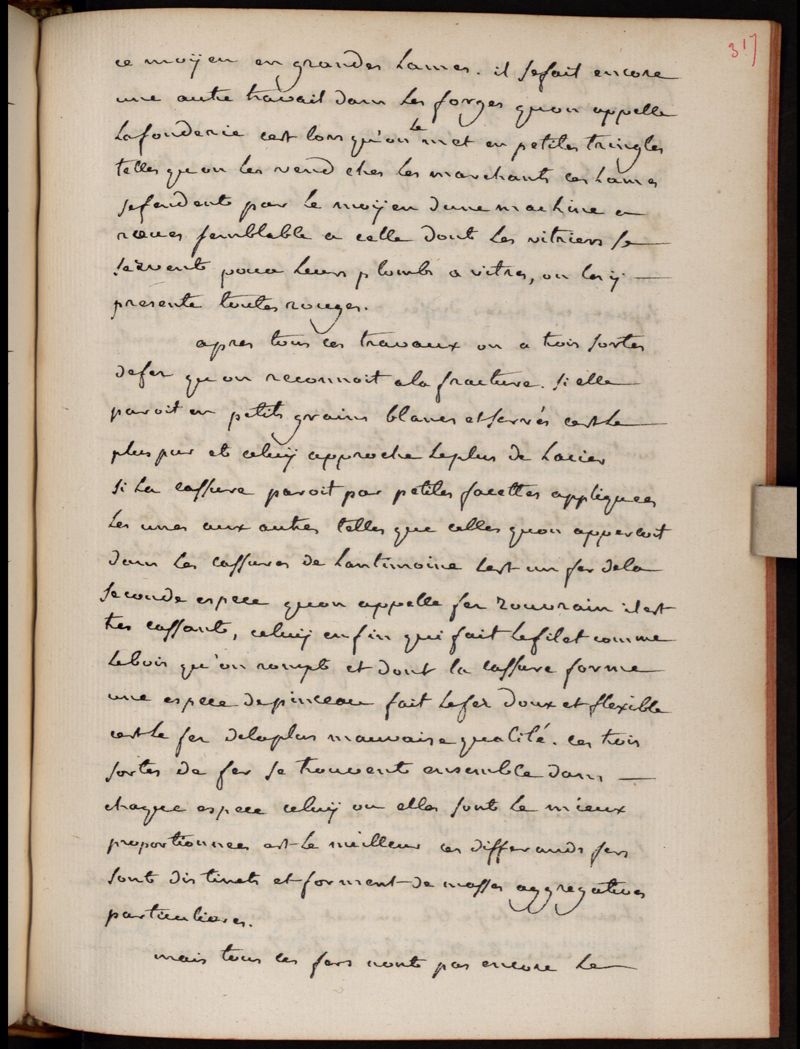 317
ce moÿen en grandes Lames. il se fait encore
une autre travail dans Les forges quon appelle
La fonderie cest lors qu'on Le met en petites tringles
telles quon Les vend ches Les marchants ces Lames
se fendent par Le moÿen dune machine a
roues semblable a celle dont Les vitriers Se
Servent pour Leurs plombs a vitres, on Les ÿ
presente toutes rouges.
apres tous ces travaux on a trois sortes
defer qu'on reconnoit ala fracture. si elle
paroit en petits grains blancs et serrés cest Le
plus pur et celuÿ approche Leplus de Lacier
si La cassure paroit par petites facettes appliquees
Les unes aux autres telles que celles quon appercoit
dans Les cassures de Lantimoine Lest un fer dela
Seconde espece quon appelle fer rouvrain il est
tres cassant, celuÿ enfin qui fait Lefilet comme
Lebois qu'on rompt et dont la cassure forme
une espece depinceau fait Lefer doux et flexible
cest Le fer delaplus mauvaise qualité. ces trois
sortes de fer se trouvent ensemble dans
chaque espece celuÿ ou elles sont Le mieux
proportionnees est Le meilleur ces differands fers
sont distincts et forment de masses aggregatives
particulieres.
mais tous ces fers n'ont pas encore Le